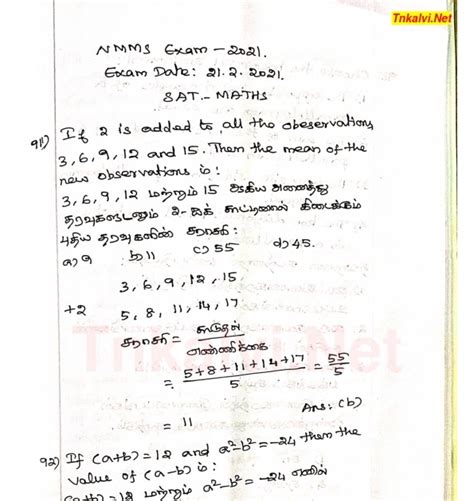 Tnkalvi.Net
NMMS Exam - 2021.
Exam Date: 21.2.2021.
SAT - MATHS
91) If 2 is added to all the obeservations
3, 6, 9, 12 and 15. Then the mean of the
new observations is:
3, 6, 9, 12 மற்றும் 15 ஆகிய அனைத்து
தரவுகளுடனும் 2-ஐக் கூட்டினால் கிடைக்கும்
புதிய தரவுகளின் சராசரி:
a) 9 b) 11 c) 55 d) 45.
3, 6, 9, 12, 15
+2
5, 8, 11, 14, 17
சராசரி = கூடுதல்
எண்ணிக்கை
= 5+8+11+14+17 = 55
5 5
Ans: (b)
= 11
92) If (a+b) = 12 and a²-b² = -24 then the
value of (a-b) is:
(a+b) = 12 மற்றும் a²-b² = -24 எனில்
Tnkalvi.Net